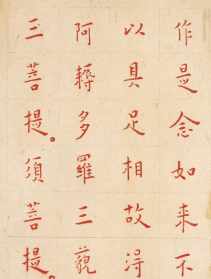 作是念如来不
以具足相故淂
阿耨多羅三藐
三菩提。須菩提。